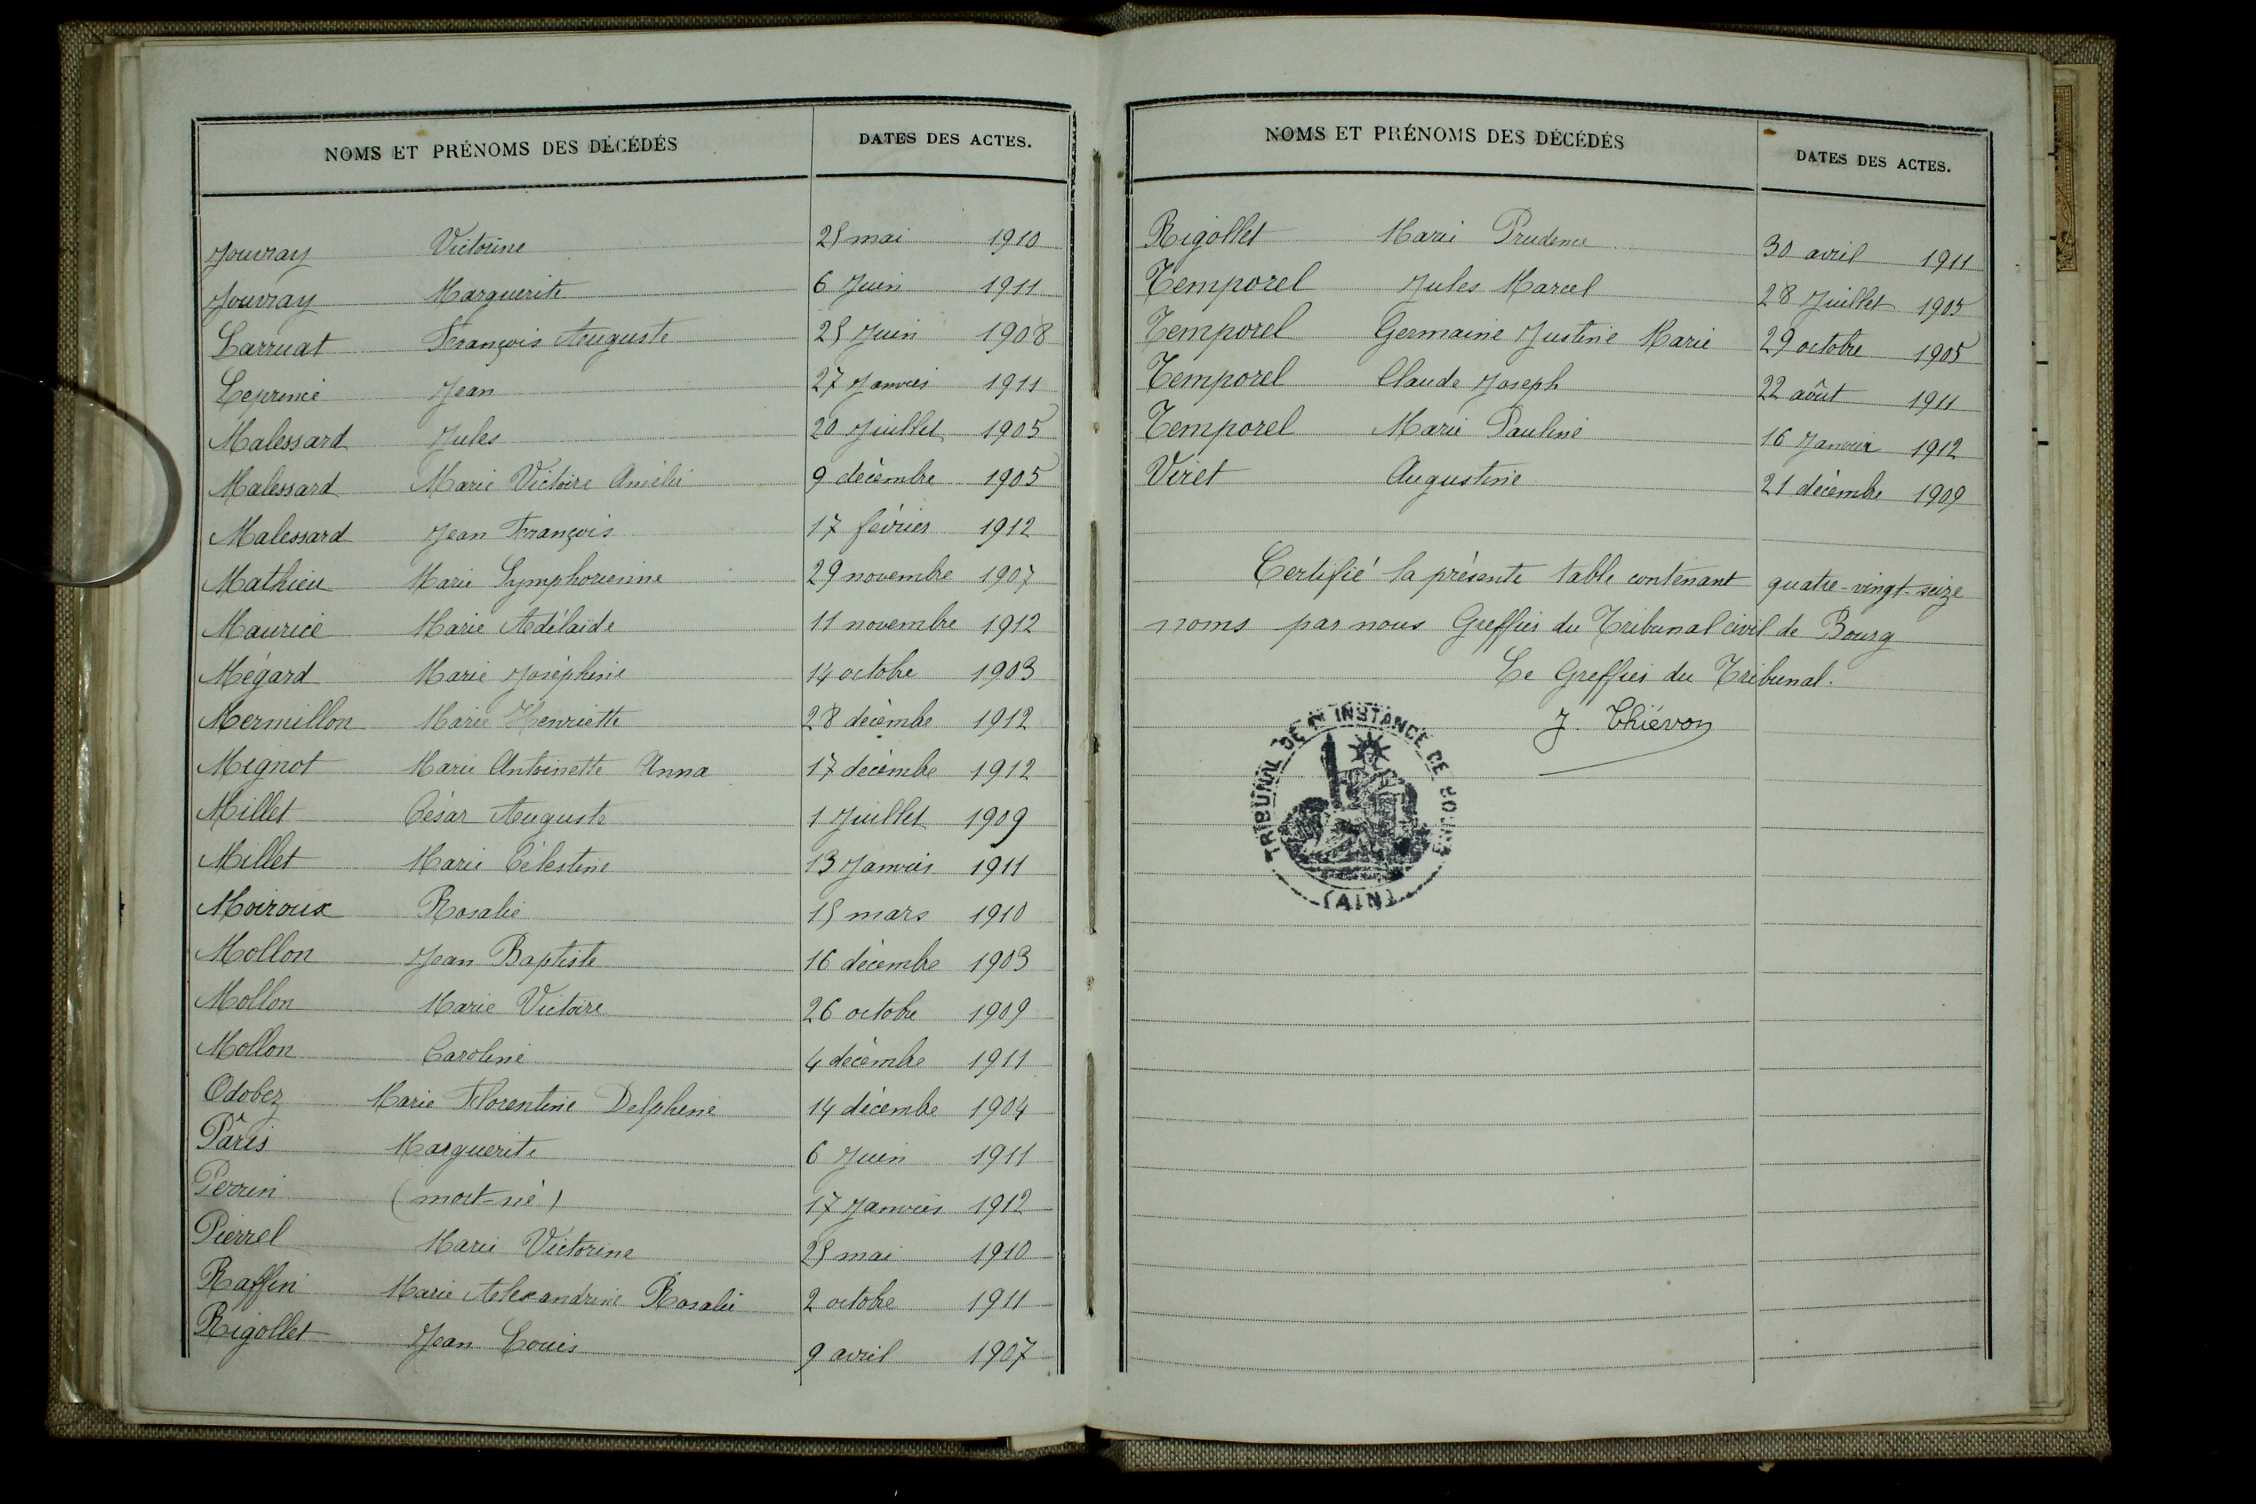 NOMS ET PRÉNOMS DES DÉCÉDÉS DATES DES ACTES.
Jouvray Victorine 25 mai 1910
Jouvray Marguerite 6 Juin 1911
Larruat François Auguste 25 Juin 1908
Leprince Jean 27 Janvier 1911
Malessard Jules 20 Juillet 1905
Malessard Marie Victoire Amélie 9 décembre 1905
Malessard Jean François 17 février 1912
Mathieu Marie Symphorienne 29 novembre 1907
Maurice Marie Adélaïde 11 novembre 1912
Mégard Marie Joséphine 14 octobre 1903
Mermillon Marie Henriette 28 décembre 1912
Mignot Marie Antoinette Anna 17 décembre 1912
Millet César Auguste 1 Juillet 1909
Millet Marie Célestine 13 Janvier 1911
Moiroux Rosalie 15 mars 1910
Mollon Jean Baptiste 16 décembre 1903
Mollon Marie Victoire 26 octobre 1909
Mollon Caroline 4 décembre 1911
Odobez Marie Florentine Delphine 14 décembre 1904
Pâris Marguerite 6 Juin 1911
Perrin (mort-né) 17 Janvier 1912
Pierrel Marie Victorine 25 mai 1910
Raffin Marie Alexandrine Rosalie 2 octobre 1911
Rigollet Jean Louis 9 avril 1907
NOMS ET PRÉNOMS DES DÉCÉDÉS DATES DES ACTES.
Rigollet Marie Prudence 30 avril 1911
Temporel Jules Marcel 28 Juillet 1905
Temporel Germaine Justine Marie 29 octobre 1905
Temporel Claude Joseph 22 aôut 1911
Temporel Marie Pauline 16 Janvier 1912
Viret Augustine 21 décembre 1909
Certifié la présente table contenant quatre-vingt-seize
noms par nous Greffier du Tribunal civil de Bourg
Le Greffier du Tribunal.
J. Thiévon
TRIBUNAL DE 1re INSTANCE DE BOURG
(AIN)